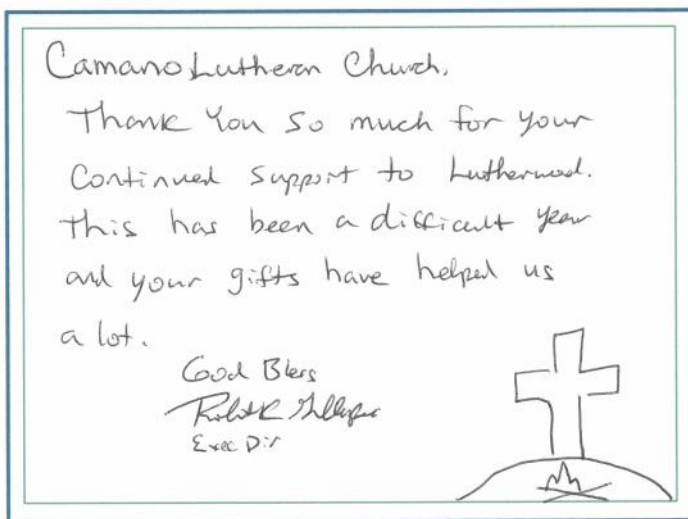 Camano Lutheran Church,
Thank You so much for your
Continued support to Lutherwood.
This has been a difficult year
and your gifts have helped us
a lot.
Good Bless
Exec Dir